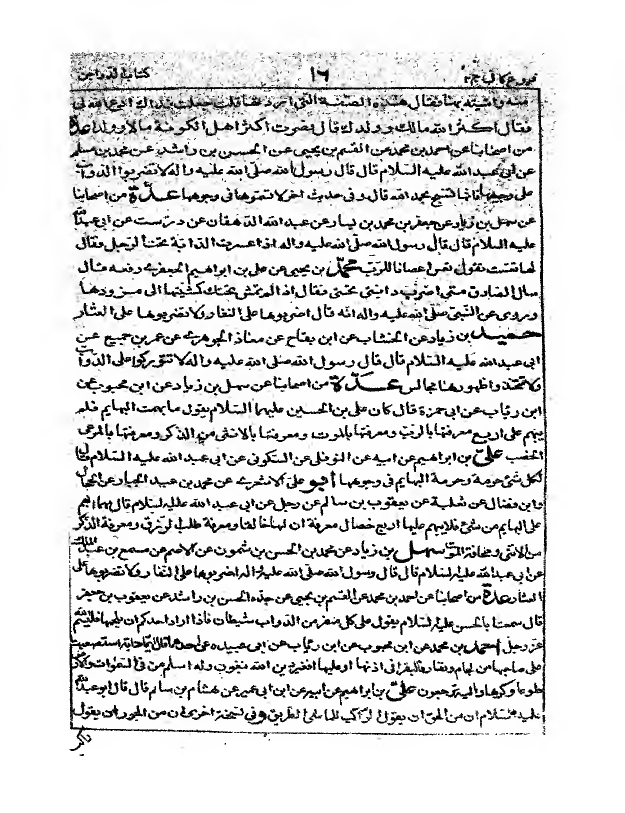 فروع كافى ج٢ ١٦ كتاب الدواجن
فقال اكثر الله مالك وولدك قال فصرت اكثر اهل الكوفة مالا وولدا عدة
من اصحابنا عن احمد بن محمد عن القسم بن يحيى عن الحسن بن راشد عن محمد بن مسلم
عن ابى عبد الله عليه السلام قال قال رسول الله صلى الله عليه واله لا تضربوا الدواب
على وجوهها فانها تسبح بحمد الله قال وفى حديث اخر لا تسموها فى وجوهها عدة من اصحابنا
عن سهل بن زياد عن جعفر بن محمد بن يسار عن عبد الله الدهقان عن درست عن ابى عبد الله
عليه السلام قال قال رسول الله صلى الله عليه واله اذا عثرت الدابة تحت الرجل فقال
لها تعست تقول تعس اعصانا للرب محمد بن يحيى عن على بن ابراهيم الجعفرى رفعه قال
سال الصادق متى اضرب دابتى تحتى فقال اذا لم تمش تحتك كمشيتها الى مزودها
وروى عن النبى صلى الله عليه واله انه قال اضربوها على النفار ولا تضربوها على العثار
حميد بن زياد عن الخشاب عن ابن بقاح عن معاذ الجوهرى عن عمرو بن جميع عن
ابى عبد الله عليه السلام قال قال رسول الله صلى الله عليه واله لا تتوركوا على الدواب
ولا تتخذوا ظهورها مجالس عدة من اصحابنا عن سهل بن زياد عن ابن محبوب عن
ابن رئاب عن ابى حمزة قال كان على بن الحسين عليهما السلام يقول ما بهمت البهايم فلم
يبهم على اربع معرفتها بالرب ومعرفتها بالموت ومعرفتها بالانثى من الذكر ومعرفتها بالمرعى
الخصب على بن ابراهيم عن ابيه عن النوفلى عن السكونى عن ابى عبد الله عليه السلام قال
لكل شئ حرمة وحرمة البهايم فى وجوهها ابو على الاشعرى عن محمد بن عبد الجبار عن الحجال
وابن فضال عن ثعلبة عن يعقوب بن سالم عن رجل عن ابى عبد الله عليه السلام قال مهما ابهم
على البهايم من شئ فلا يبهم عليها اربع خصال معرفة ان لها خالقا ومعرفة طلب الرزق ومعرفة الذكر
من الانثى ومخافة الموت سهل بن زياد عن محمد بن الحسن بن شمون عن الاصم عن مسمع بن عبد الملك
عن ابى عبد الله عليه السلام قال قال رسول الله صلى الله عليه واله اضربوها على النفار ولا تضربوها على
العثار عدة من اصحابنا عن احمد بن محمد عن القسم بن يحيى عن جده الحسن بن راشد عن يعقوب بن جعفر
قال سمعت ابا الحسن عليه السلام يقول على كل منخر من الدواب شيطان فاذا اراد احدكم ان يلجمها فليسم
عز وجل احمد بن محمد عن ابن محبوب عن ابن رئاب عن ابى عبيده عن احدهما قال ايما دابة استصعبت
على صاحبها من لجام ونفار فليقرا فى اذنها او عليها افغير دين الله يبغون وله اسلم من فى السموات والارض
طوعا وكرها واليه ترجعون على بن ابراهيم عن ابيه عن ابن ابى عمير عن هشام بن سالم قال قال ابو عبد الله
عليه السلام ان من الحق ان يقول الراكب للماشى الطريق وفى نسخة اخرى ان من الجور ان يقول